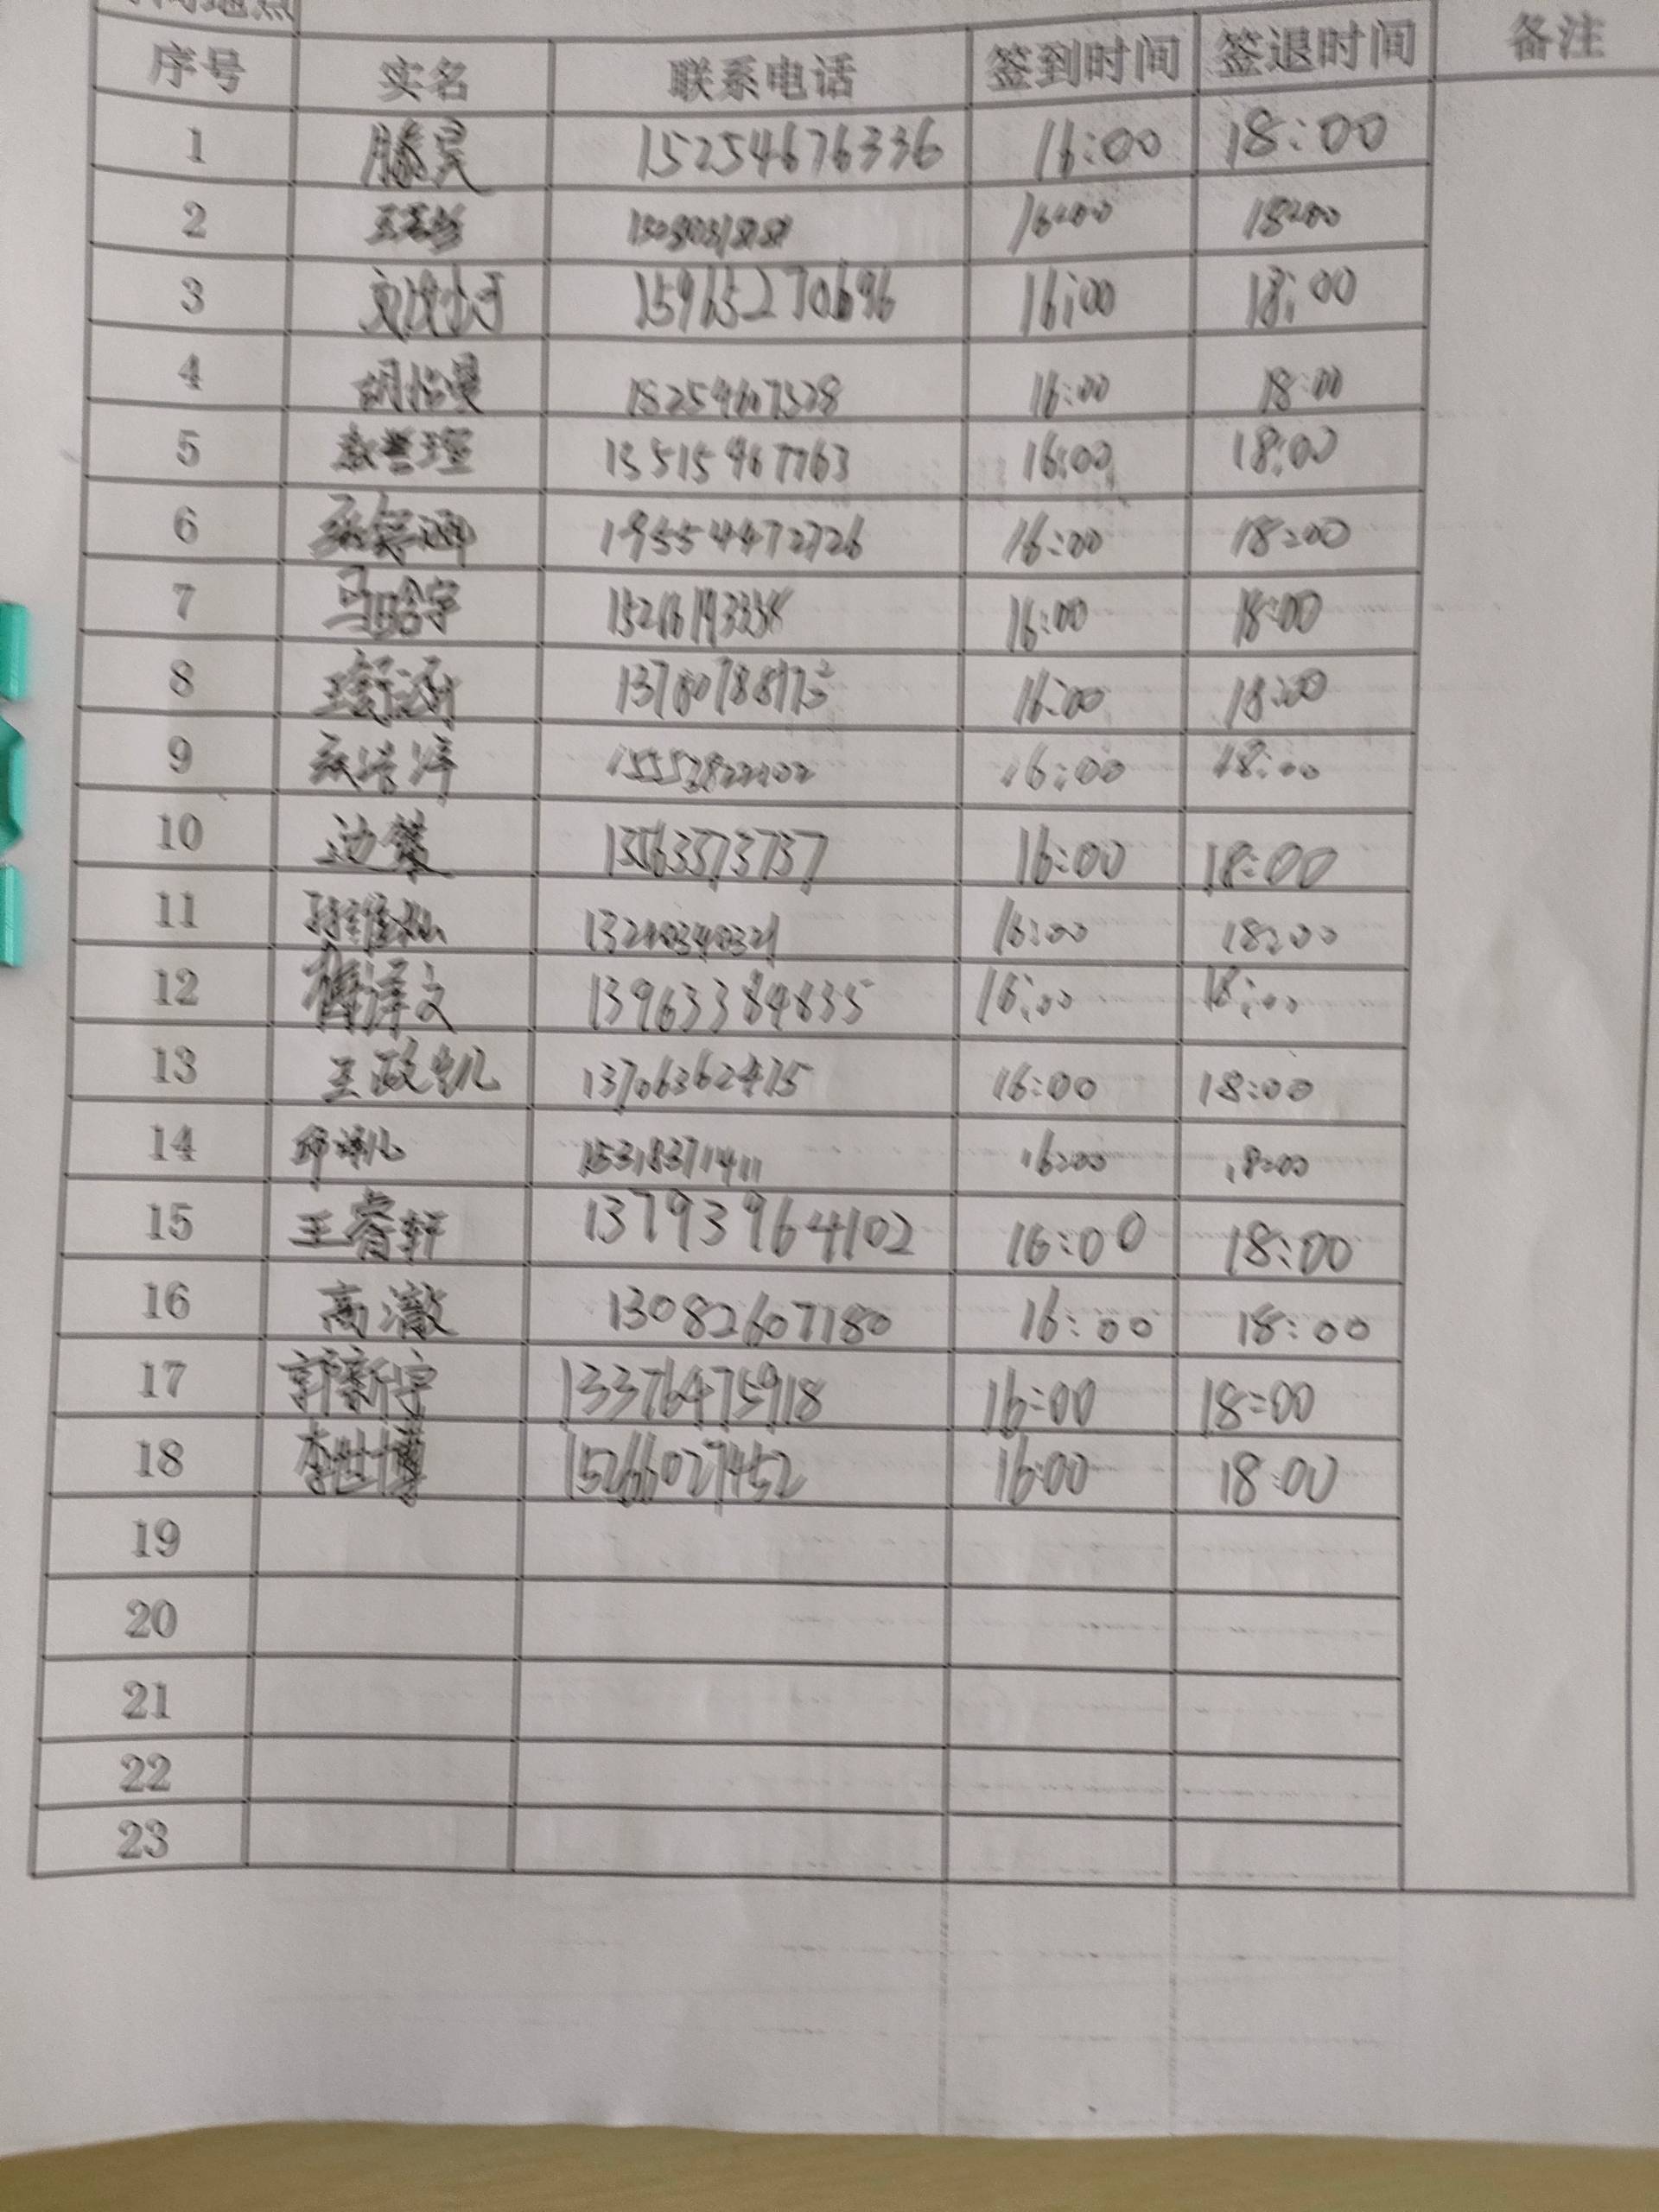 序号 实名 联系电话 签到时间 签退时间 备注
1 滕昊 15254676336 16:00 18:00
2 16:00 18:00
3 15965270696 16:00 18:00
4 胡怡曼 16:00 18:00
5 16:00 18:00
6 19554472726 16:00 18:00
7 马晗宇 16:00 18:00
8 王舒涵 16:00 18:00
9 16:00 18:00
10 边攀 16:00 18:00
11 16:00 18:00
12 傅泽文 13963384835 16:00 18:00
13 王政凯 13706362475 16:00 18:00
14 15318371411 16:00 18:00
15 王睿轩 13793964102 16:00 18:00
16 高澈 13082607180 16:00 18:00
17 郭新宇 13376475918 16:00 18:00
18 李世博 15266027452 16:00 18:00
19
20
21
22
23